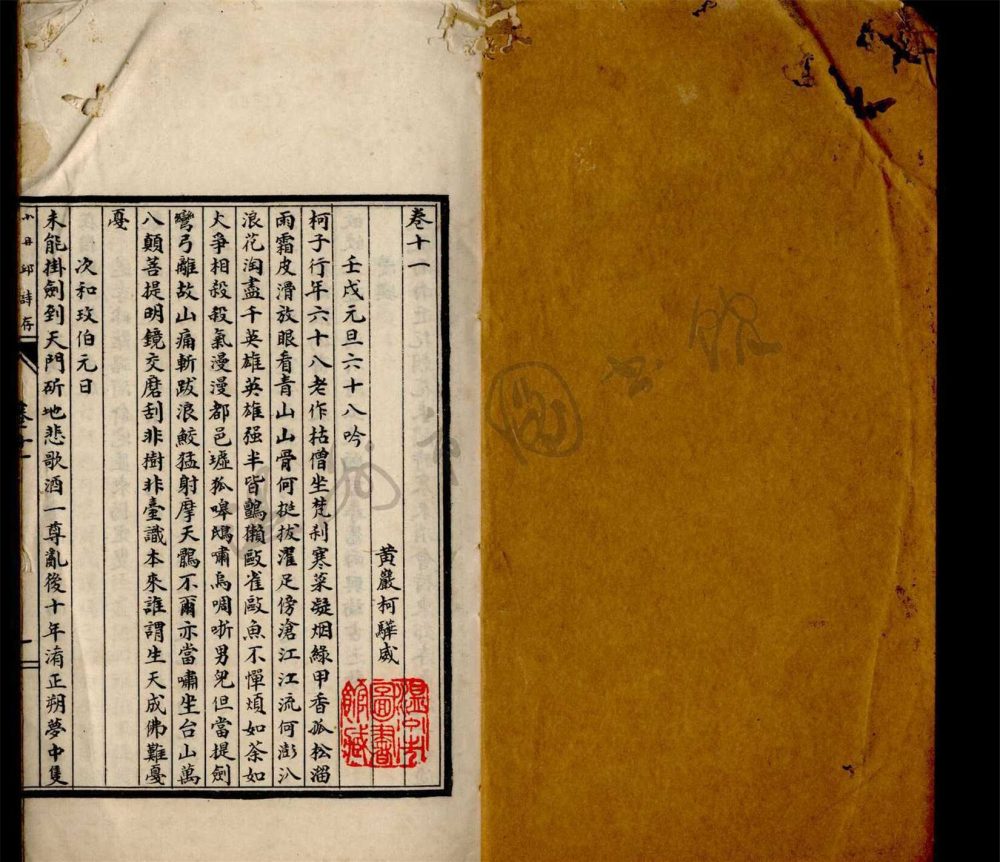 卷十一
黃巖柯驊威
壬戌元旦六十八吟
柯子行年六十八老作枯僧坐梵刹寒菜凝烟綠甲香孤松溜
雨霜皮滑放眼看青山山骨何挺拔濯足傍滄江江流何澎汃
浪花淘盡千英雄英雄强半皆鸇獺敺雀敺魚不憚煩如荼如
火爭相殺殺氣漫漫都邑墟狐嘷鴟嘯烏啁哳男兒但當提劍
彎弓離故山痛斬跋浪鮫猛射摩天鶻不爾亦當嘯坐台山萬
八顛菩提明鏡交磨刮非樹非臺識本來誰謂生天成佛難戞
戞
次和玫伯元日
未能掛劍到天門斫地悲歌酒一尊亂後十年淆正朔夢中隻
小丹邱詩存
卷十一
一
溫州市
圖書
館藏
溫州市圖書館